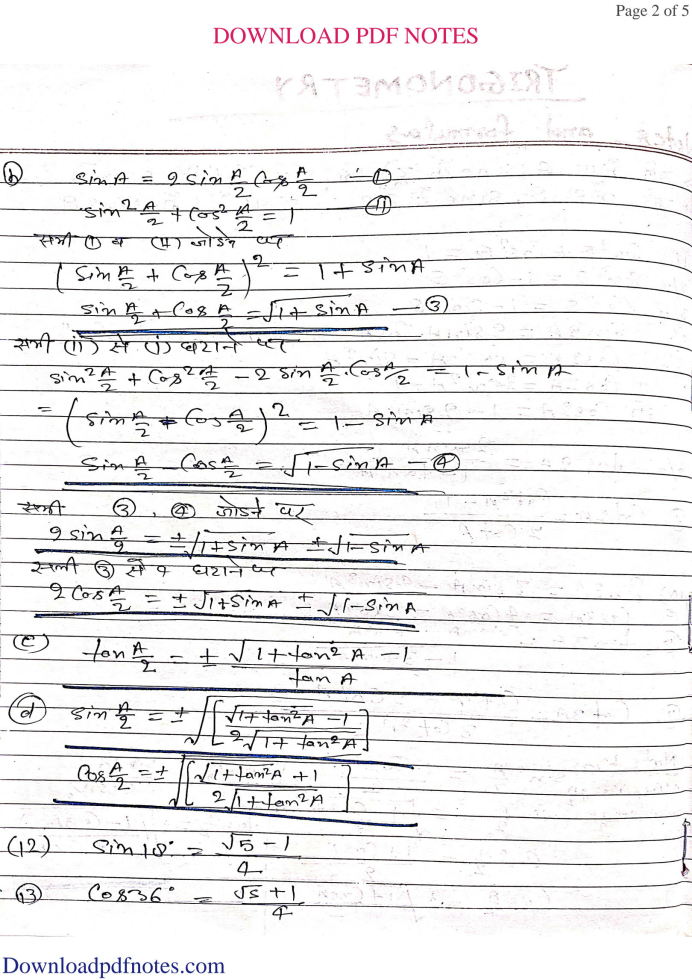 Page 2 of 5
DOWNLOAD PDF NOTES
TRIGONOMETRY
and formulas
(b) sin A = 2 sin A/2 Cos A/2 — (i)
sin² A/2 + Cos² A/2 = 1 (ii)
समी (i) व (ii) जोडने पर
(sin A/2 + Cos A/2)² = 1 + sin A
sin A/2 + Cos A/2 = √(1 + sin A) — (3)
समी (ii) से (i) घटाने पर
sin² A/2 + Cos² A/2 - 2 sin A/2 . Cos A/2 = 1 - sin A
= (sin A/2 - Cos A/2)² = 1 - sin A
Sin A/2 - Cos A/2 = √(1 - sin A) — (4)
समी (3), (4) जोडने पर
2 sin A/2 = ±√(1 + sin A) ±√(1 - sin A)
समी (3) से 4 घटाने पर
2 Cos A/2 = ± √(1 + Sin A) ± √(1 - Sin A)
(c) tan A/2 = ± (√(1 + tan² A) - 1) / tan A
(d) sin A/2 = ± √[(√(1 + tan² A) - 1) / (2√(1 + tan² A))]
Cos A/2 = ± √[(√(1 + tan² A) + 1) / (2√(1 + tan² A))]
(12) Sin 18° = (√5 - 1) / 4
(13) Cos 36° = (√5 + 1) / 4
Downloadpdfnotes.com